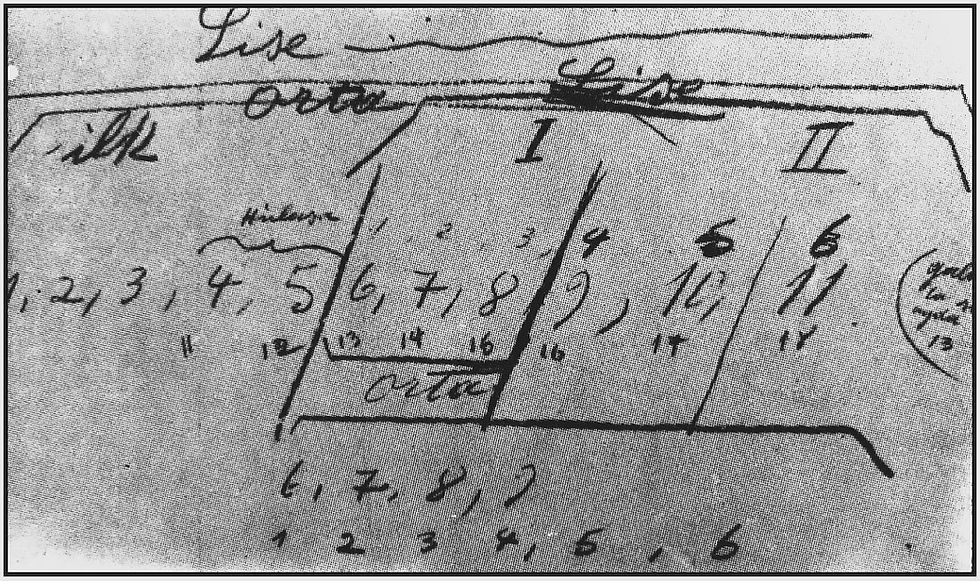 Lise
orta Lise
ilk I II
1 2 3 4 5 6
1, 2, 3, 4, 5 6, 7, 8 9, 10, 11
11 12 13 14 16 16 17 18
orta
6, 7, 8, 9
1 2 3 4, 5, 6